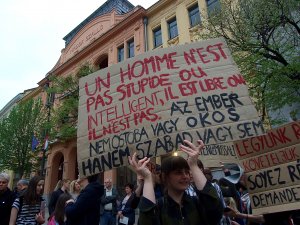 UN HOMME N'EST
PAS STUPIDE OU
INTELLIGENT, IL EST LIBRE OU
IL N'EST PAS. AZ EMBER
NEM OSTOBA VAGY OKOS
HANEM SZABAD VAGY SEM
LEGYÜNK
KÖVETELJÜK
SOYEZ RÉ
DEMANDE